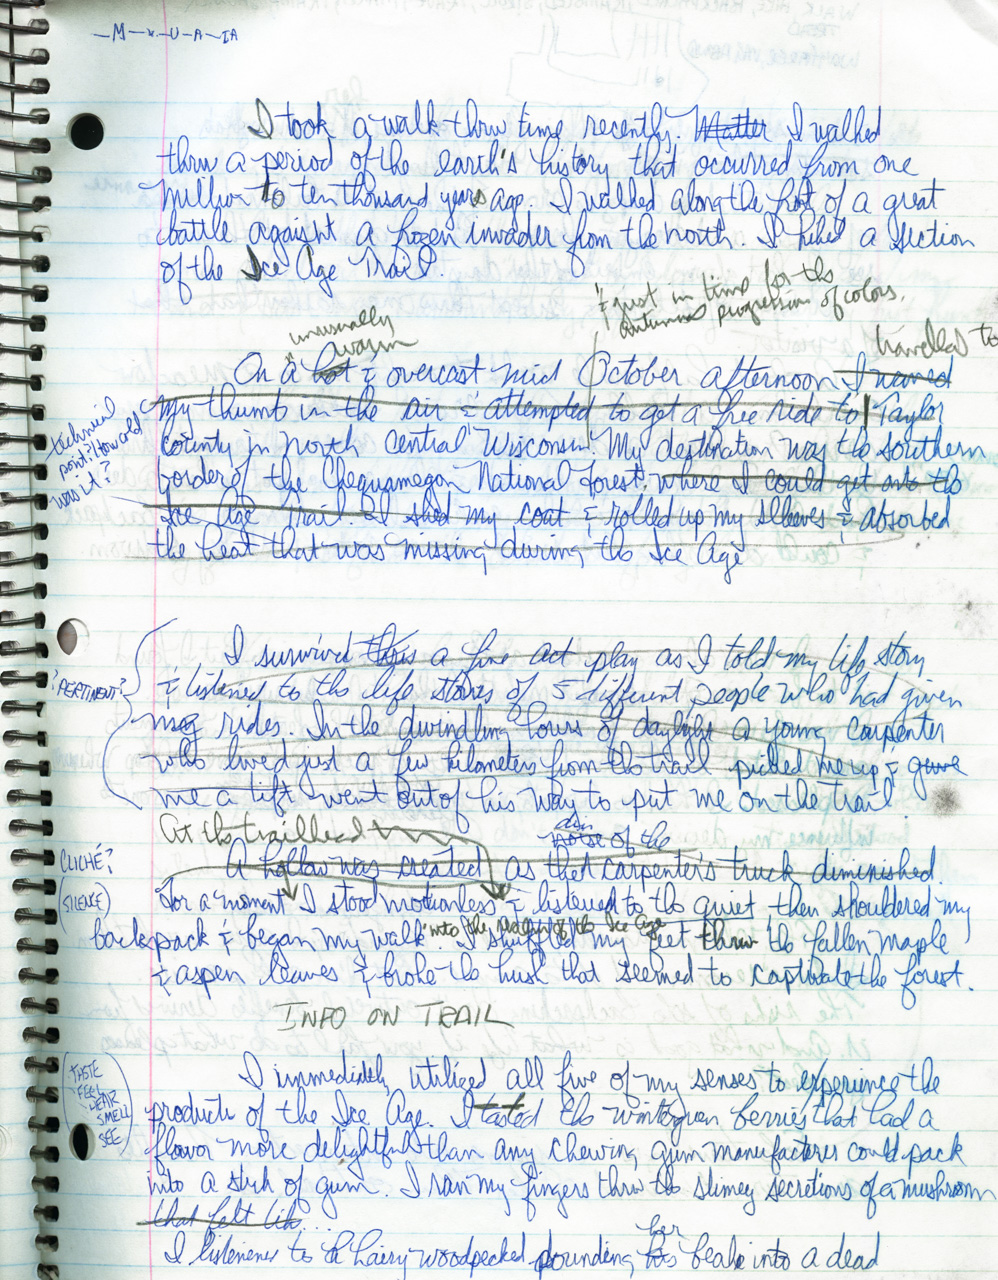 I took a walk thru time recently. Matter I walked
thru a period of the earth's history that ocurred from one
million to ten thousand years ago. I walked along the front of a great
battle against a frozen invader from the north. I hiked a section
of the Ice Age Trail.
& just in time for the
autumn progression of colors.
unusually
warm
travelled to
On a hot & overcast mid October afternoon I waved
my thumb in the air & attempted to get a free ride to Taylor
county in north central Wisconsin. My destination was the southern
border of the Chequamegon National Forest, where I could get onto the
Ice Age Trail. I shed my coat & rolled up my sleeves & absorbed
the heat that was missing during the Ice Age
technical
point? How cold
was it?
I survived this a five act play as I told my life story
& listened to the life stories of 5 different people who had given
me rides. In the dwindling hours of daylight a young carpenter
who lived just a few kilometers from the trail picked me up & gave
me a lift went out of his way to put me on the trail
?PERTINENT?
At the trailhead
din
noise of the
A hollow was created as the carpenter's truck diminished.
CLICHÉ?
(SILENCE)
For a moment I stood motionless & listened to the quiet then shouldered my
backpack & began my walk into the realm of the Ice Age. I shuffled my feet thru the fallen maple
& aspen leaves & broke the hush that seemed to captivate the forest.
INFO ON TRAIL
TASTE
FEEL
HEAR
SMELL
SEE
I immediately utilized all five of my senses to experience the
products of the Ice Age. I tasted the wintergreen berries that had a
flavor more delightful than any chewing gum manufacturers could pack
into a stick of gum. I ran my fingers thru the slimey secretions of a mushroom
that felt like...
her
I listenener to the hairy woodpecked pounding his beak into a dead